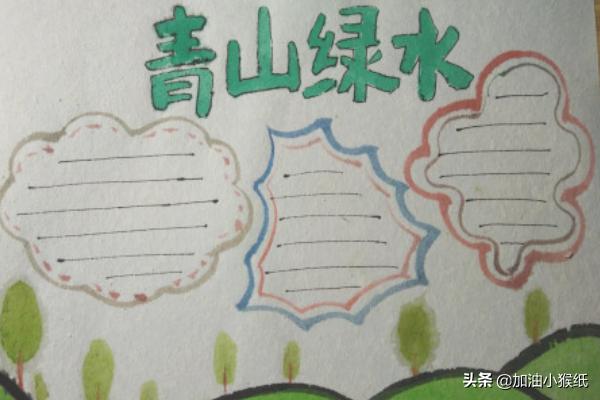 青山绿水
头条 @加油小猴纸